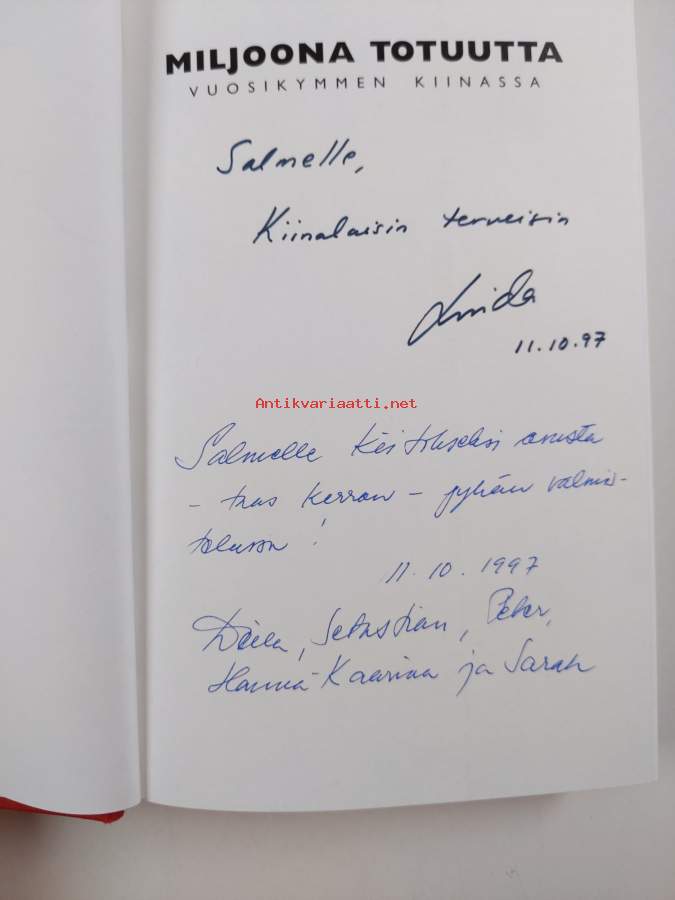 MILJOONA TOTUUTTA
VUOSIKYMMEN KIINASSA
Salmelle,
Kiinalaisin terveisin
Linda
11.10.97
Antikvariaatti.net
Salmelle kiitokseksi avusta
- taas kerran - juhlan valmis-
teluson!
11.10.1997
Sebastian, Peter,
Hanna-Kaarina ja Sarah